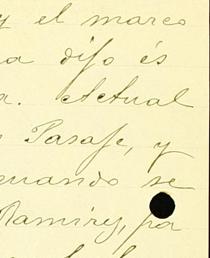 y el marco
a dijo és
a. Actual
Pasaje, y
cuando se
Ramirez, po